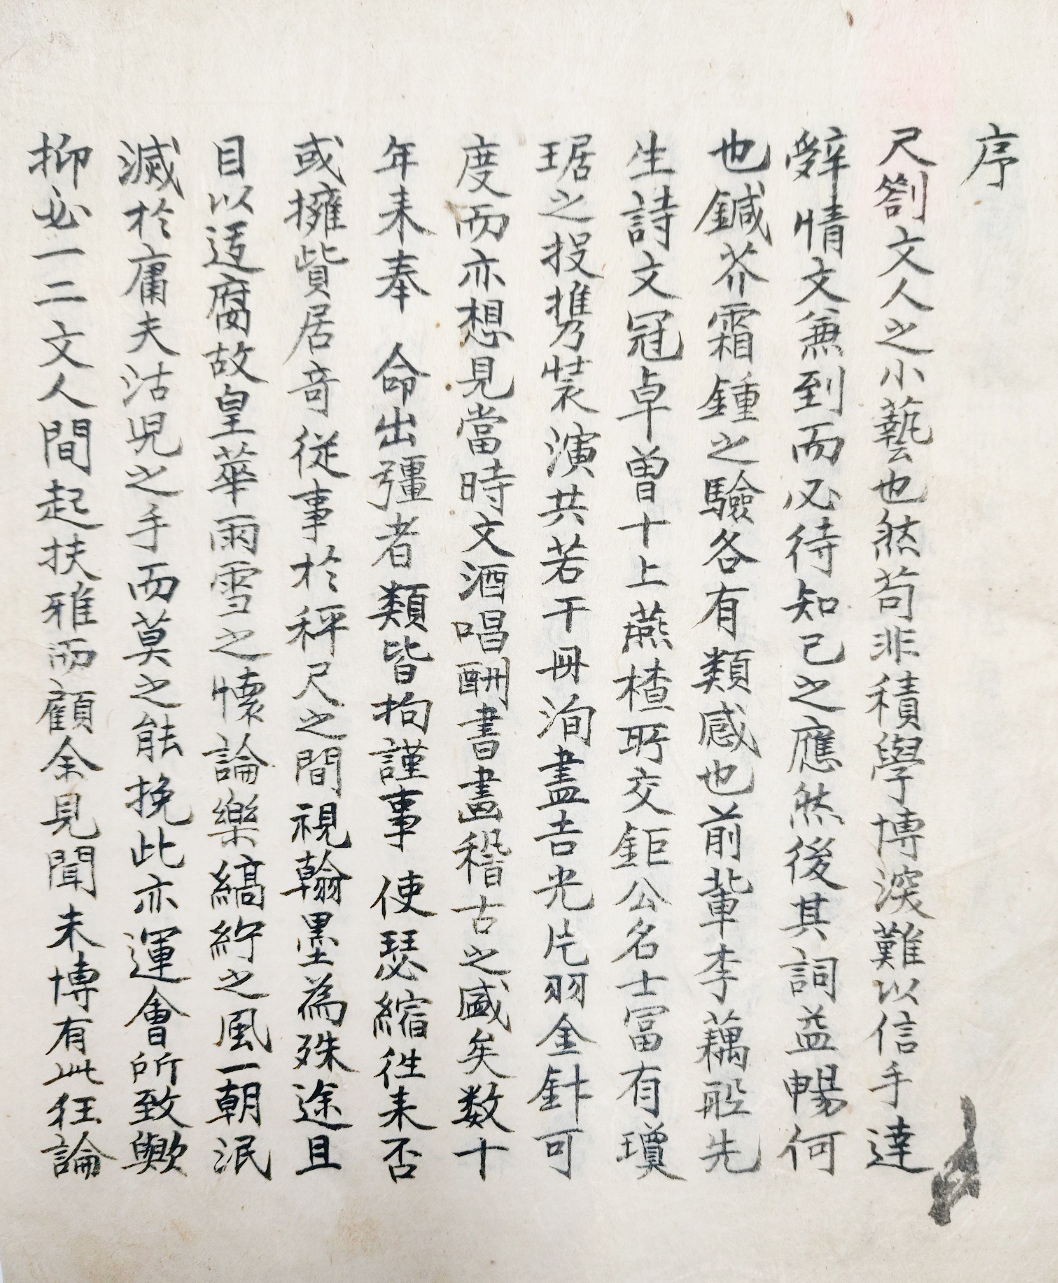 序
尺劄文人之小藝也然苟非積學博深難以信手達
辭情文兼到而必待知己之應然後其詞益暢何
也鍼芥霜鍾之驗各有類感也前輩李藕船先
生詩文冠卓曾十上燕槎所交鉅公名士富有瓊
琚之投攜裝演共若干冊洵盡吉光片羽金針可
度而亦想見當時文酒唱酬書畫稽古之盛矣数十
年来奉 命出彊者類皆拘謹事 使瑟縮往来否
或擁貲居奇従事於秤尺之間視翰墨為殊途且
目以迂腐故皇華雨雪之懷論樂縞紵之風一朝泯
滅於庸夫沽児之手而莫之能挽此亦運會所致歟
抑必一二文人間起扶雅而顧余見聞未博有此狂論